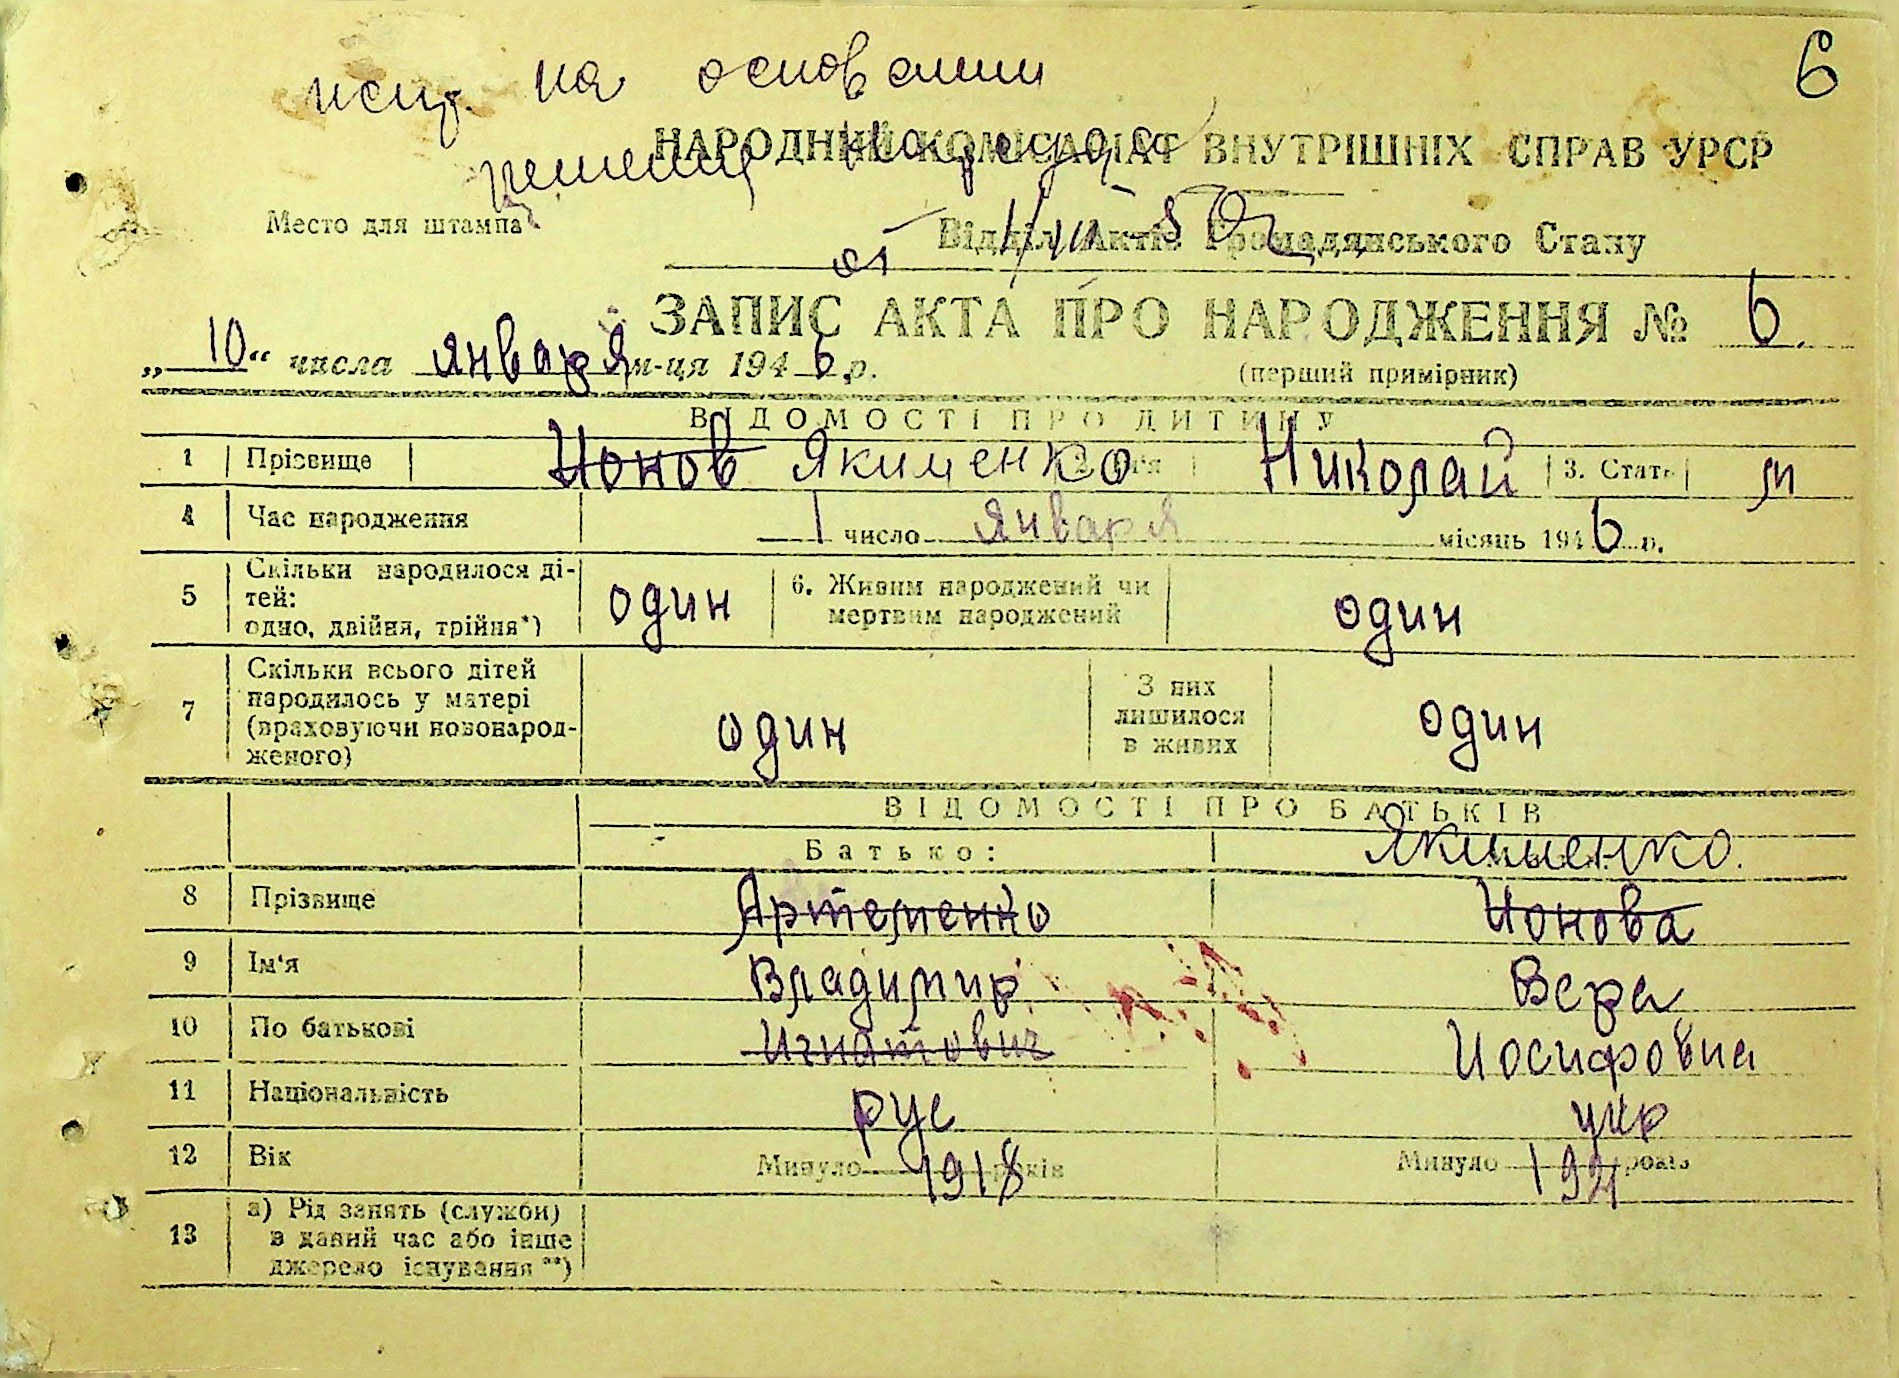 6
испр. на основании
решения нарсуда
НАРОДНИЙ КОМІСАРІАТ ВНУТРІШНІХ СПРАВ УРСР
Место для штампа
от
Відділ Актів Громадянського Стану
ЗАПИС АКТА ПРО НАРОДЖЕННЯ № 6.
„10“ числа января м-ця 1946 р.
(перший примірник)
ВІДОМОСТІ ПРО ДИТИНУ
1 Прізвище Ионов Якименко 2. Ім'я Николай 3. Стать м
4 Час народження 1 число января місяць 1946 р.
5 Скільки народилося ді-
тей:
одно, двійня, трійня*) один 6. Живим народжений чи
мертвим народжений один
7 Скільки всього дітей
народилось у матері
(враховуючи новонарод-
женого) один З них
лишилося
в живих один
ВІДОМОСТІ ПРО БАТЬКІВ
Батько: Якименко.
8 Прізвище Артеменко Ионова
9 Ім'я Владимир Вера
10 По батькові Игнатович Иосифовна
11 Національність рус укр
12 Вік Минуло 1918 років Минуло років
13 а) Рід занять (служби)
в даний час або інше
джерело існування**)